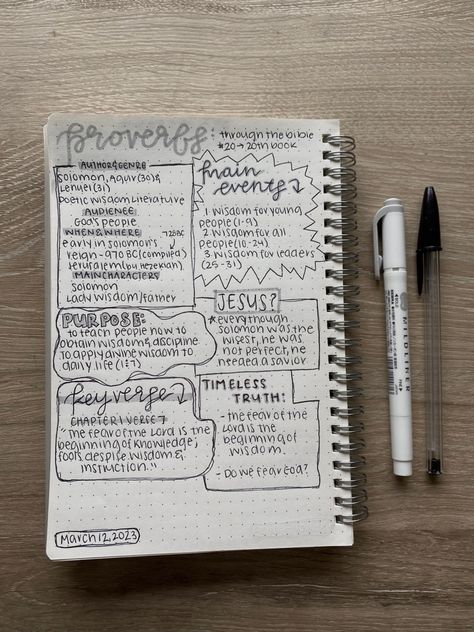 proverbs:
through the bible
*20 → 20th book
AUTHOR & GENRE
Solomon, Agur (30) &
Lemuel (31)
Poetic wisdom literature
AUDIENCE
God's people
WHEN & WHERE
early in Solomon's
reign - 970 BC (compiled)
Jerusalem (by Hezekiah)
MAIN CHARACTERS
Solomon
Lady Wisdom/Father
main
events
1 wisdom for young
people (1-9)
2 wisdom for all
people (10-24)
3 wisdom for leaders
(25-31)
PURPOSE:
to teach people how to
obtain wisdom & discipline
to apply divine wisdom to
daily life (1:7)
JESUS?
*even though
Solomon was the
wisest, he was
not perfect, he
needed a savior
key verse
CHAPTER 1 VERSE 7
"The fear of the Lord is the
beginning of knowledge;
fools despise wisdom &
instruction."
TIMELESS
TRUTH:
- the fear of the
Lord is the
beginning of
wisdom.
- Do we fear God?
March 12, 2023
MILDLINER